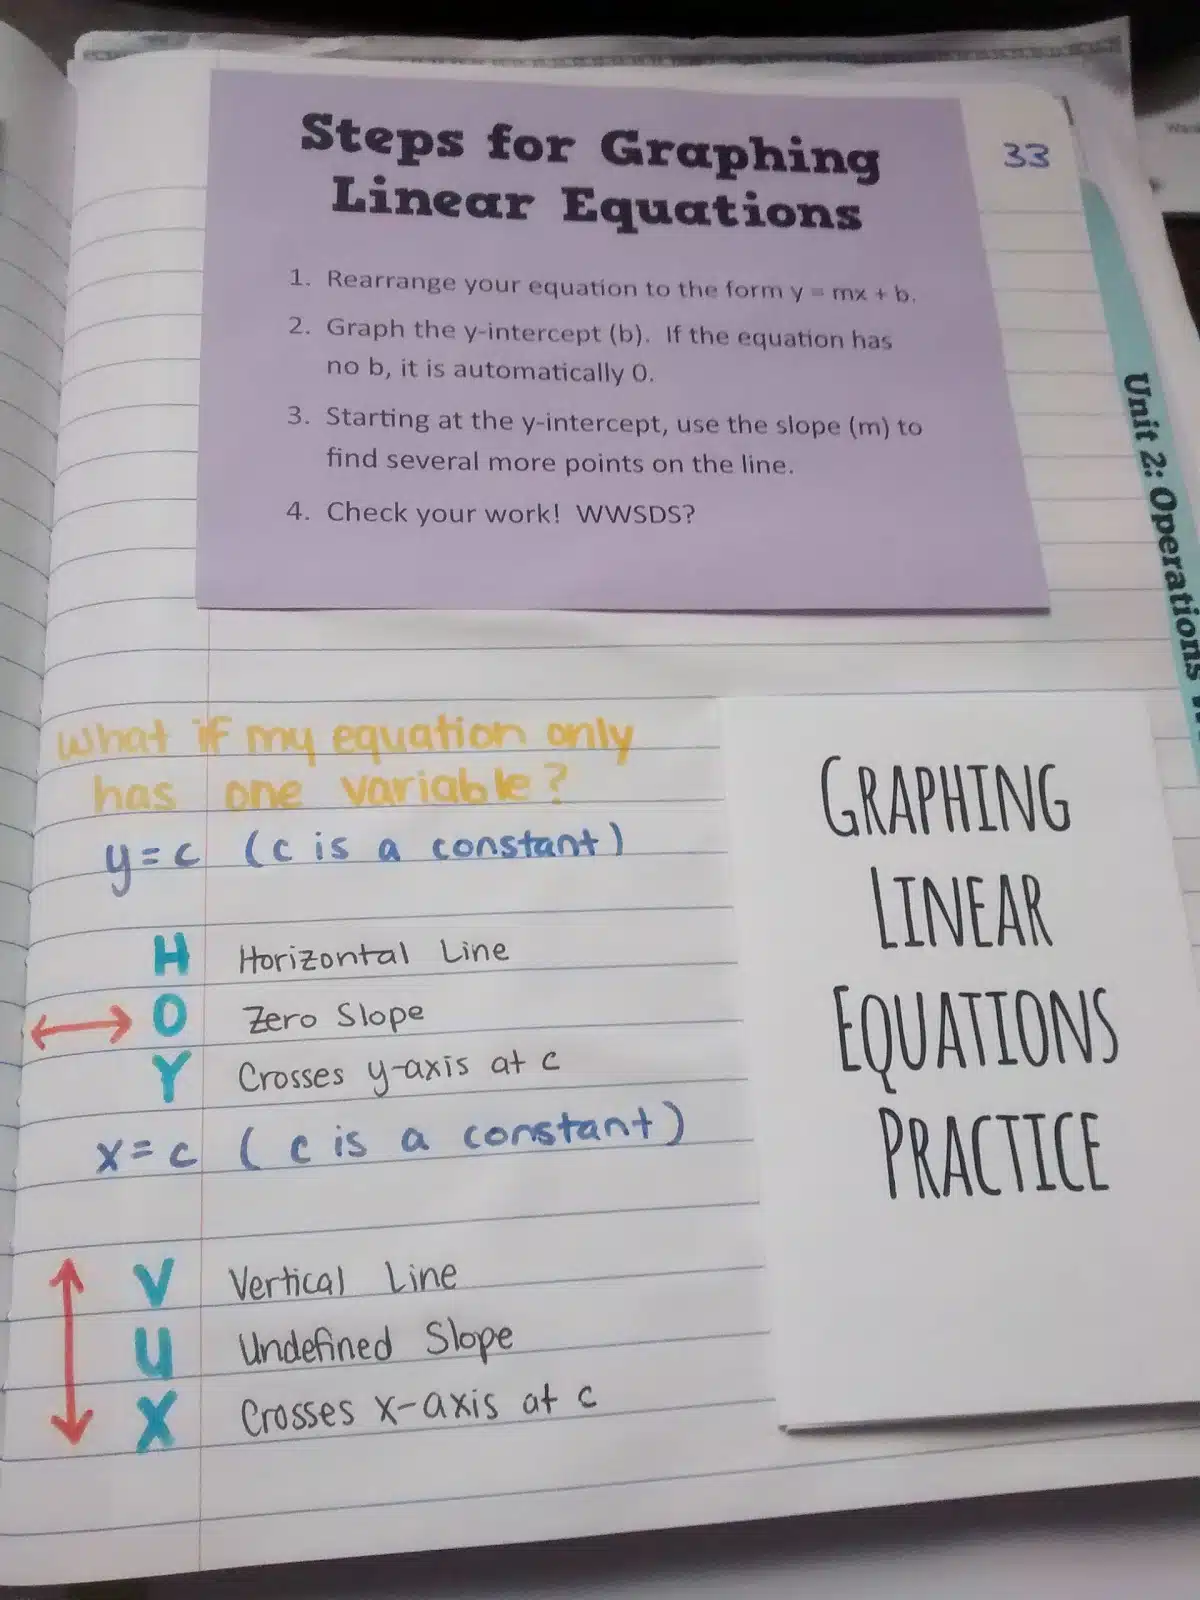 33
Steps for Graphing
Linear Equations
1. Rearrange your equation to the form y = mx + b.
2. Graph the y-intercept (b). If the equation has
no b, it is automatically 0.
3. Starting at the y-intercept, use the slope (m) to
find several more points on the line.
4. Check your work! WWSDS?
Unit 2: Operations
What if my equation only
has one variable?
y=c (c is a constant)
H Horizontal Line
O Zero Slope
Y Crosses y-axis at c
x=c (c is a constant)
V Vertical Line
U Undefined Slope
X Crosses x-axis at c
GRAPHING
LINEAR
EQUATIONS
PRACTICE